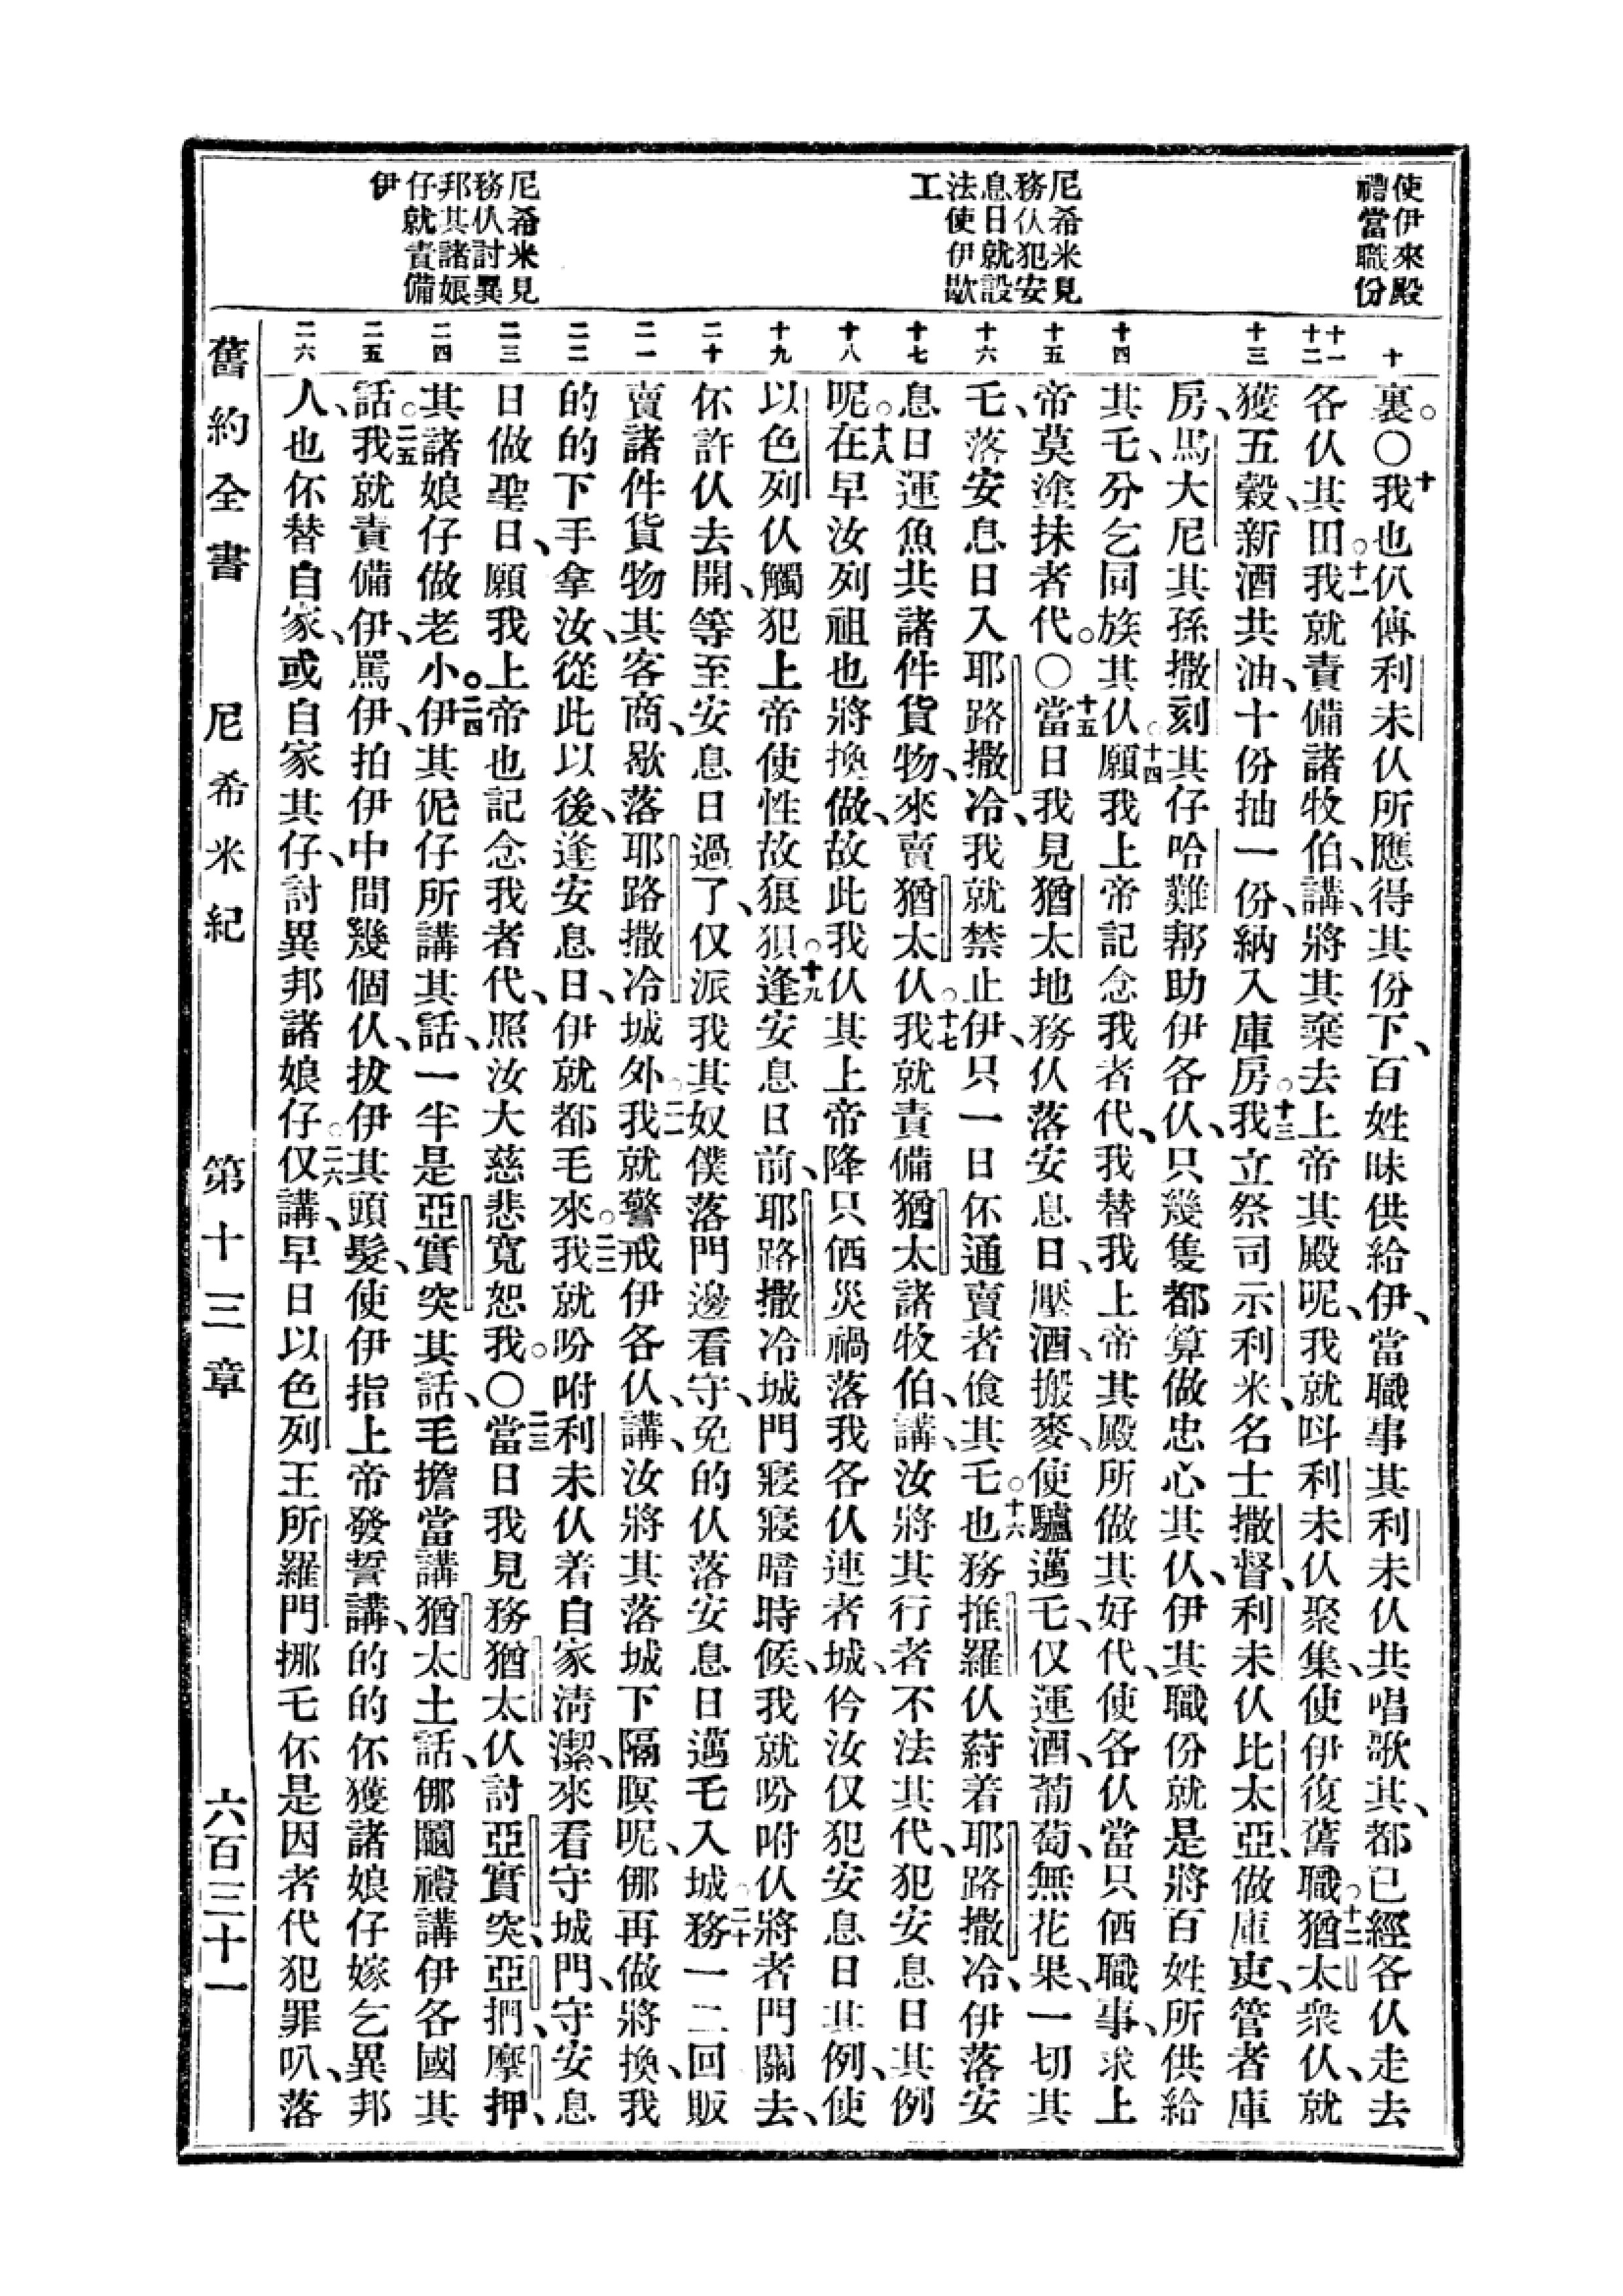 使伊來殿
禮當職份
尼希米見
務仈犯安
息日就設
法使伊歇
工
尼希米見
務仈討異
邦其諸娘
仔就責備
伊
十 十一 十二 十三 十四 十五 十六 十七 十八 十九 二十 二一 二二 二三 二四 二五 二六
裏。〇十我也仈傳利未仈所應得其份下、百姓昧供給伊、當職事其利未仈共唱歌其、都已經各仈走去
各仈其田。十一我就責備諸牧伯、講、將其棄去上帝其殿呢、我就呌利未仈聚集、使伊復舊職。十二猶太衆仈、就
獲五穀、新酒共油、十份抽一份、納入庫房。十三我立祭司示利米、名士撒督、利未仈比太亞、做庫吏、管者庫
房、馬大尼其孫撒刻其仔哈難帮助伊各仈、只幾隻都算做忠心其仈、伊其職份就是將百姓所供給
其乇、分乞同族其仈。十四願我上帝記念我者代、我替我上帝其殿所做其好代、使各仈當只㑚職事、求上
帝、莫塗抹者代。〇十五當日我見猶太地務仈落安息日、壓酒、搬麥、使驢邁乇、仅運酒、葡萄、無花果、一切其
乇、落安息日入耶路撒冷、我就禁止伊、只一日伓通賣者飧其乇。十六也務推羅仈蒔着耶路撒冷、伊落安
息日運魚共諸件貨物、來賣猶太仈。十七我就責備猶太諸牧伯、講、汝將其行者不法其代、犯安息日其例
呢。十八在早汝列祖也將換做、故此我仈其上帝降只㑚災禍落我各仈連者城、仱汝仅犯安息日其例、使
以色列仈觸犯上帝使性故狠狽。十九逢安息日前、耶路撒冷城門寢寢暗時候、我就吩咐仈將者門關去、
伓許仈去開、等至安息日過了、仅派我其奴僕落門邊看守、免的仈落安息日邁乇入城。二十務一二回販
賣諸件貨物其客商、歇落耶路撒冷城外。二一我就警戒伊各仈、講、汝將其落城下隔暝呢、㑚再做將換、我
的的下手拿汝、從此以後、逢安息日、伊就都毛來。二二我就吩咐利未仈着自家淸潔、來看守城門、守安息
日做聖日、願我上帝也記念我者代、照汝大慈悲寬恕我。〇二三當日我見務猶太仈討亞實突、亞捫、摩押、
其諸娘仔做老小。二四伊其伲仔所講其話、一半是亞實突其話、毛擔當講猶太土話、㑚𨷺禮講伊各國其
話。二五我就責備伊、駡伊、拍伊中間幾個仈、拔伊其頭髮、使伊指上帝發誓講、的的伓獲諸娘仔嫁乞異邦
人、也伓替自家、或自家其仔、討異邦諸娘仔。二六仅講、早日以色列王所羅門挪乇伓是因者代犯罪叭、落
舊約全書 尼希米紀 第十三章 六百三十一